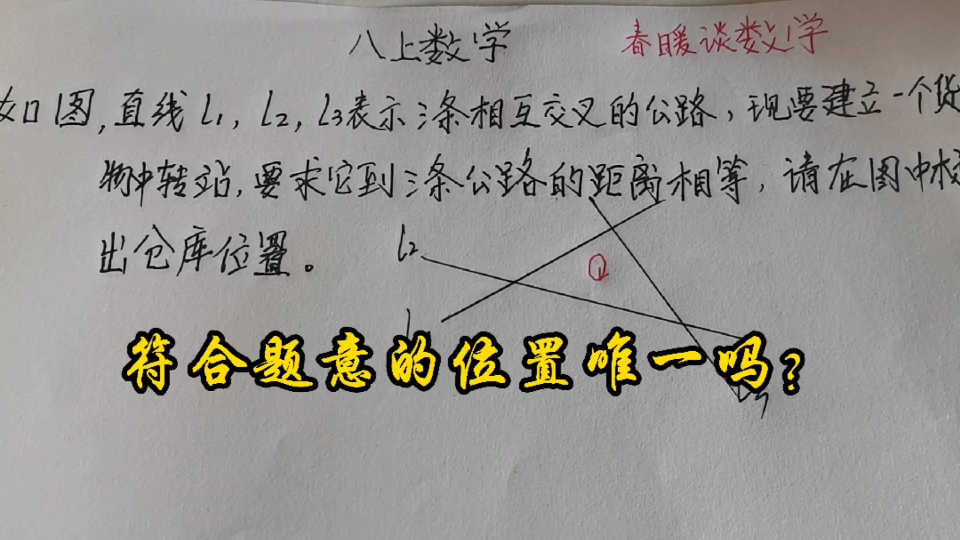 八上数学
春暖谈数学
如图,直线l1, l2, l3表示三条相互交叉的公路,现要建立一个货
物中转站,要求它到三条公路的距离相等,请在图中标
出仓库位置。
l2
①
符合题意的位置唯一吗?